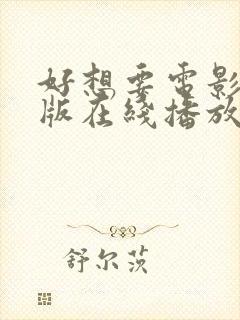 好想要电影
版在线播放
舒尔茨